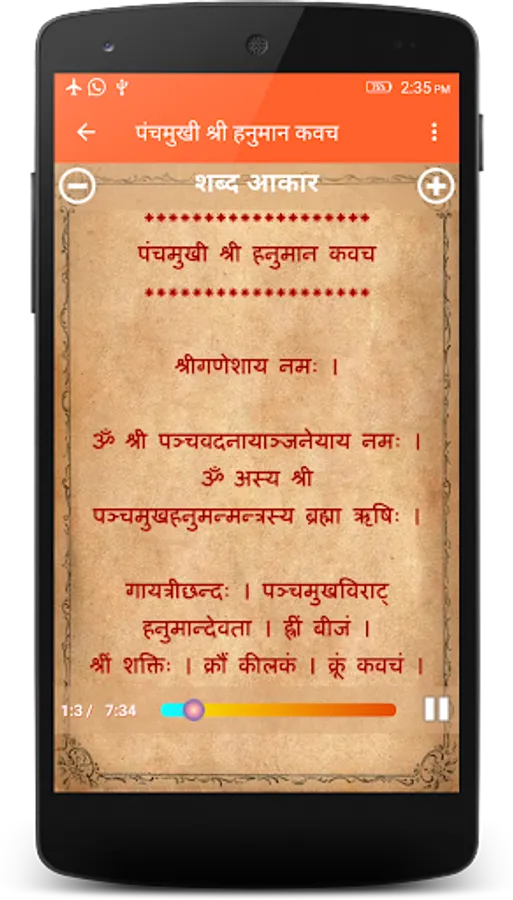 2:35 PM
पंचमुखी श्री हनुमान कवच
शब्द आकार
पंचमुखी श्री हनुमान कवच
श्रीगणेशाय नमः ।
ॐ श्री पञ्चवदनायाञ्जनेयाय नमः ।
ॐ अस्य श्री
पञ्चमुखहनुमन्मन्त्रस्य ब्रह्मा ऋषिः ।
गायत्रीछन्दः । पञ्चमुखविराट्
हनुमान्देवता । ह्रीं बीजं ।
श्रीं शक्तिः । क्रौं कीलकं । क्रूं कवचं ।
1:3 / 7:34